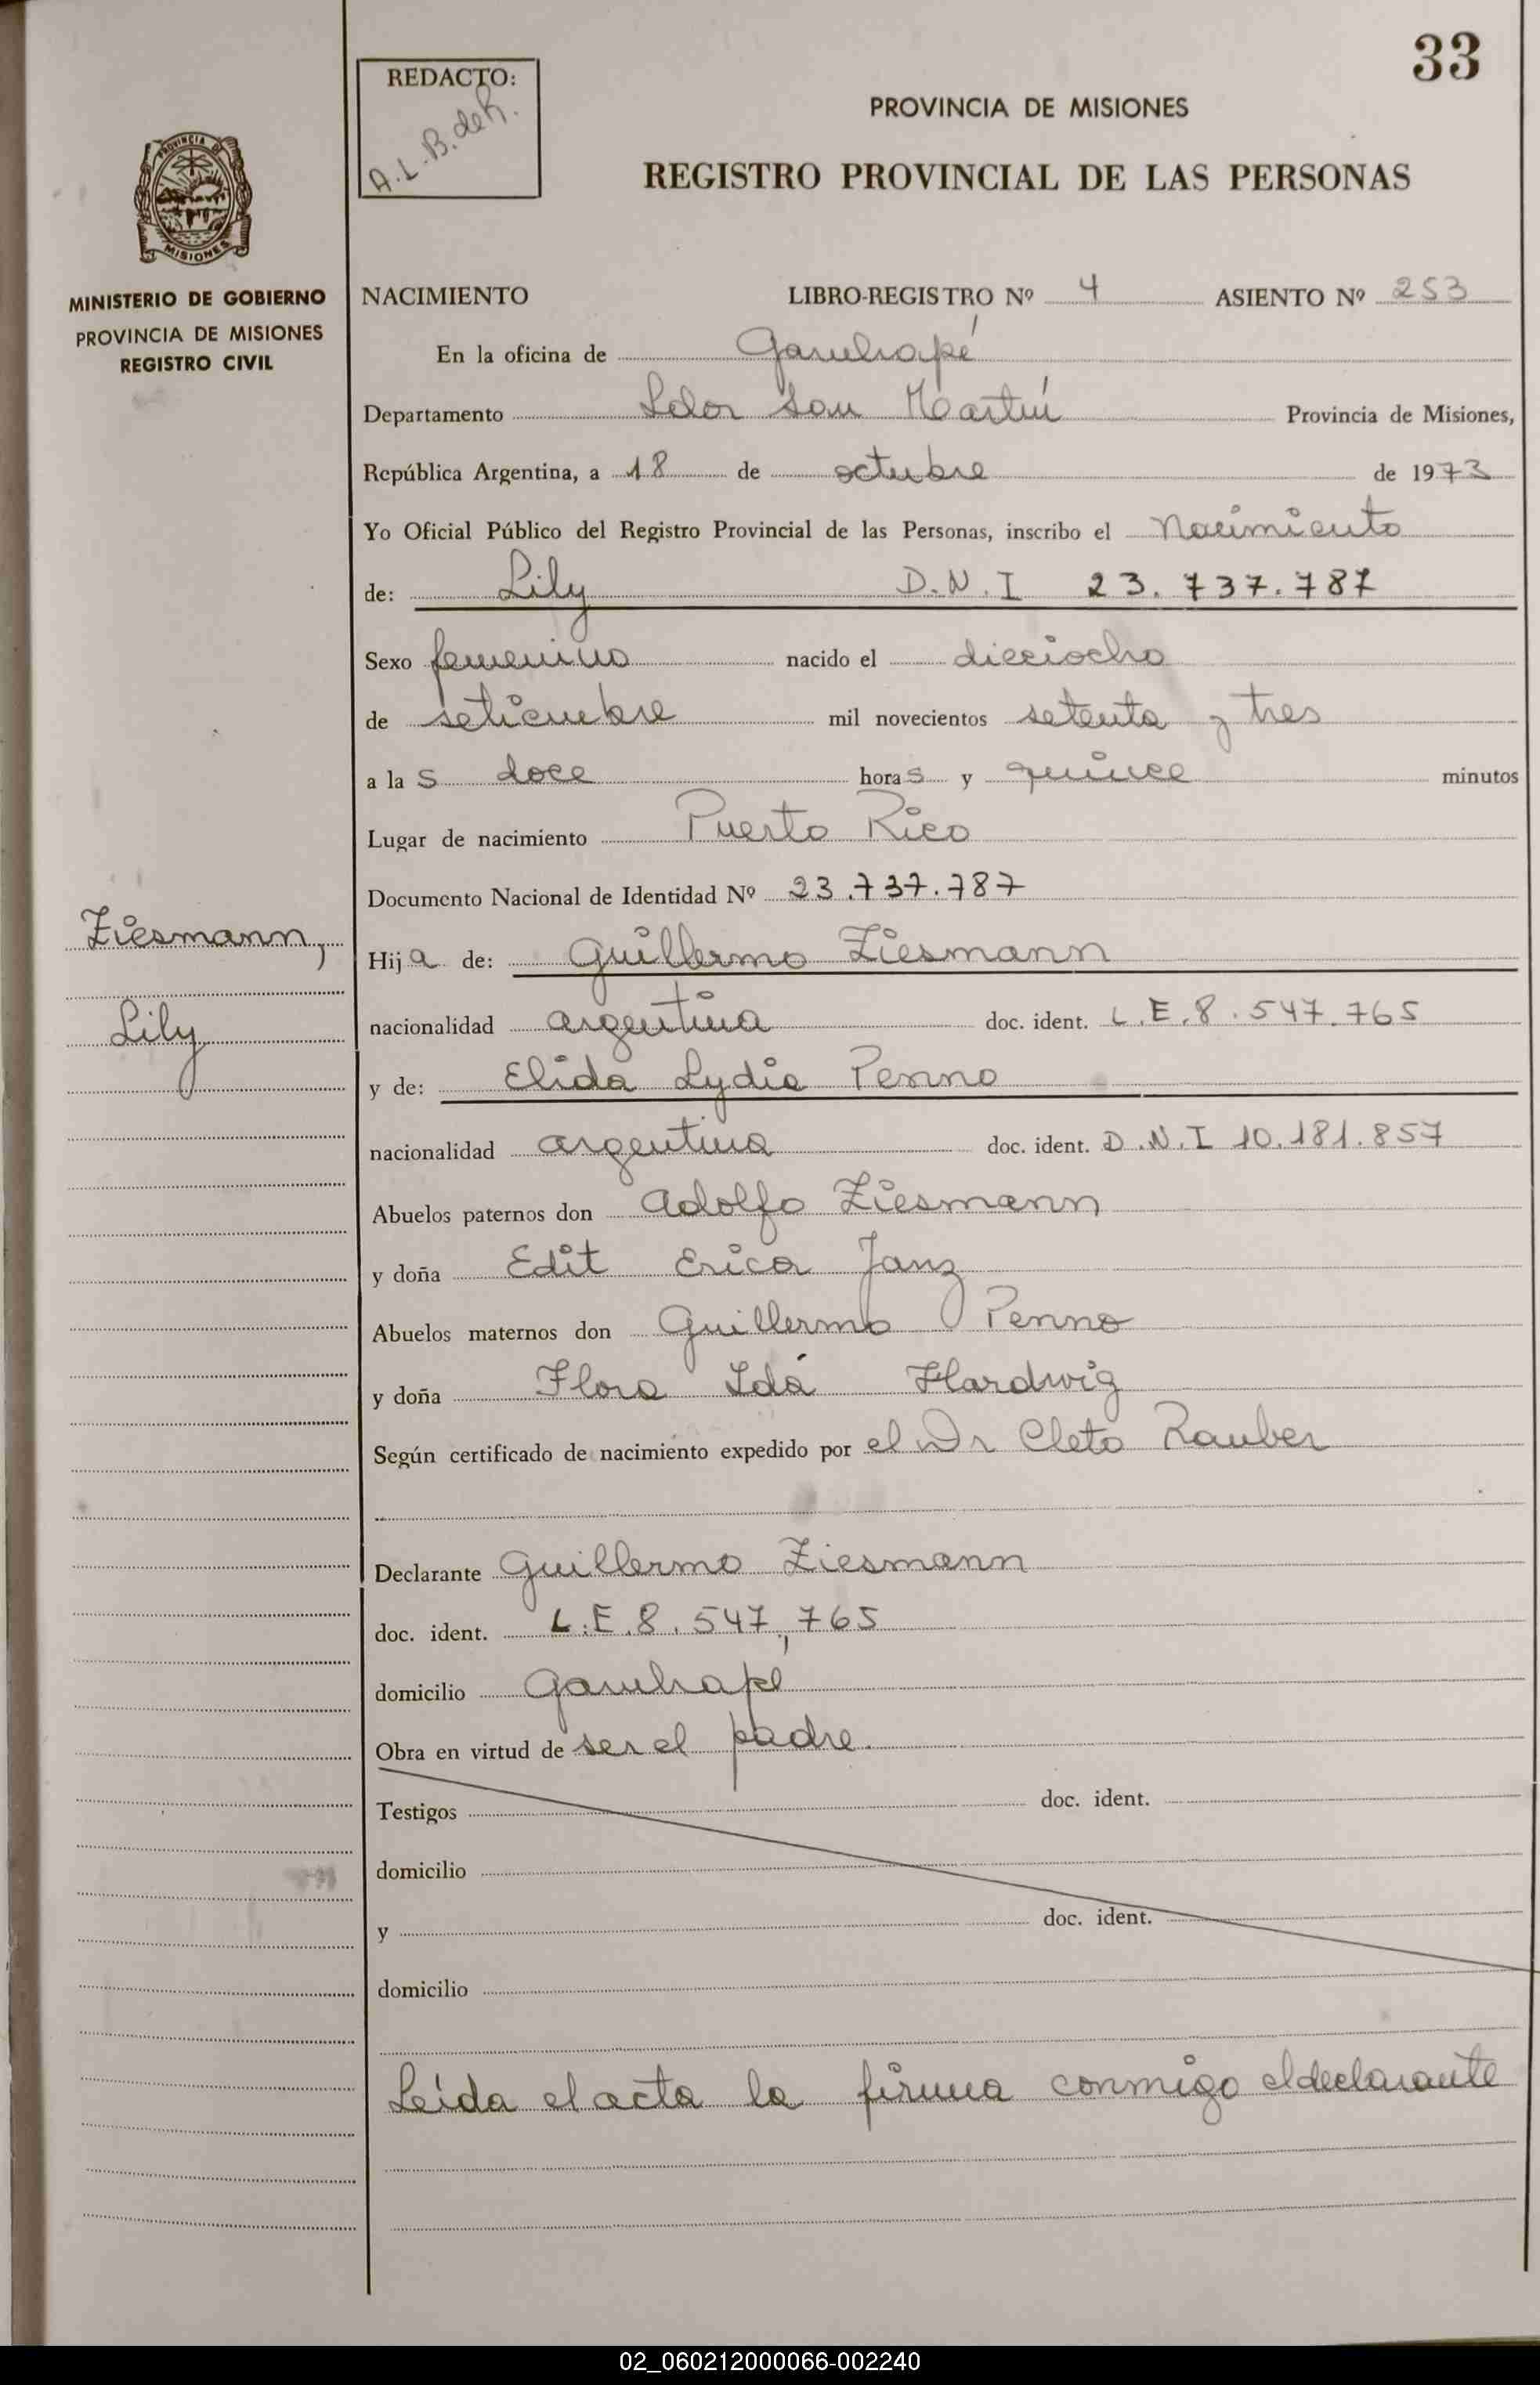 33
REDACTO:
A.L.B. de R.
PROVINCIA DE MISIONES
REGISTRO PROVINCIAL DE LAS PERSONAS
PROVINCIA DE
MISIONES
MINISTERIO DE GOBIERNO
PROVINCIA DE MISIONES
REGISTRO CIVIL
NACIMIENTO LIBRO-REGISTRO Nº 4 ASIENTO Nº 253
En la oficina de Garuhapé
Departamento Ldor San Martín Provincia de Misiones,
República Argentina, a 18 de octubre de 1973
Yo Oficial Público del Registro Provincial de las Personas, inscribo el Nacimiento
de: Lily D.N.I 23.737.787
Sexo femenino nacido el dieciocho
de setiembre mil novecientos setenta y tres
a la s doce hora s y quince minutos
Lugar de nacimiento Puerto Rico
Documento Nacional de Identidad Nº 23.737.787
Ziesmann,
Lily
Hij a de: Guillermo Ziesmann
nacionalidad argentina doc. ident. L.E.8.547.765
y de: Elida Lydia Penno
nacionalidad argentina doc. ident. D.N.I 10.181.857
Abuelos paternos don Adolfo Ziesmann
y doña Edit Erica Janz
Abuelos maternos don Guillermo Penno
y doña Flora Ida Hardwig
Según certificado de nacimiento expedido por el Dr Cleto Rauber
Declarante Guillermo Ziesmann
doc. ident. L.E.8.547,765
domicilio Garuhapé
Obra en virtud de ser el padre.
Testigos doc. ident.
domicilio
y doc. ident.
domicilio
Leída el acta la firma conmigo el declarante
02_060212000066-002240